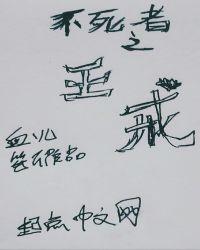 不死者
之
王
戒
血儿
签作品
起点中文网